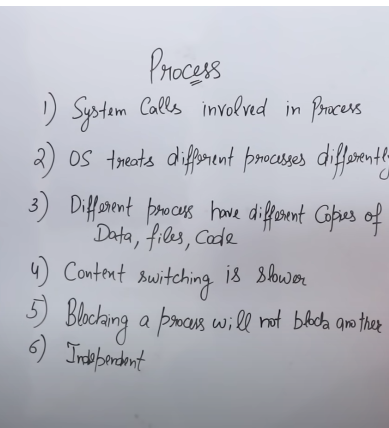 Process
1) System Calls involved in Process
2) OS treats different processes differently
3) Different process have different Copies of
Data, files, Code
4) Content switching is slower
5) Blocking a process will not block another
6) Independent